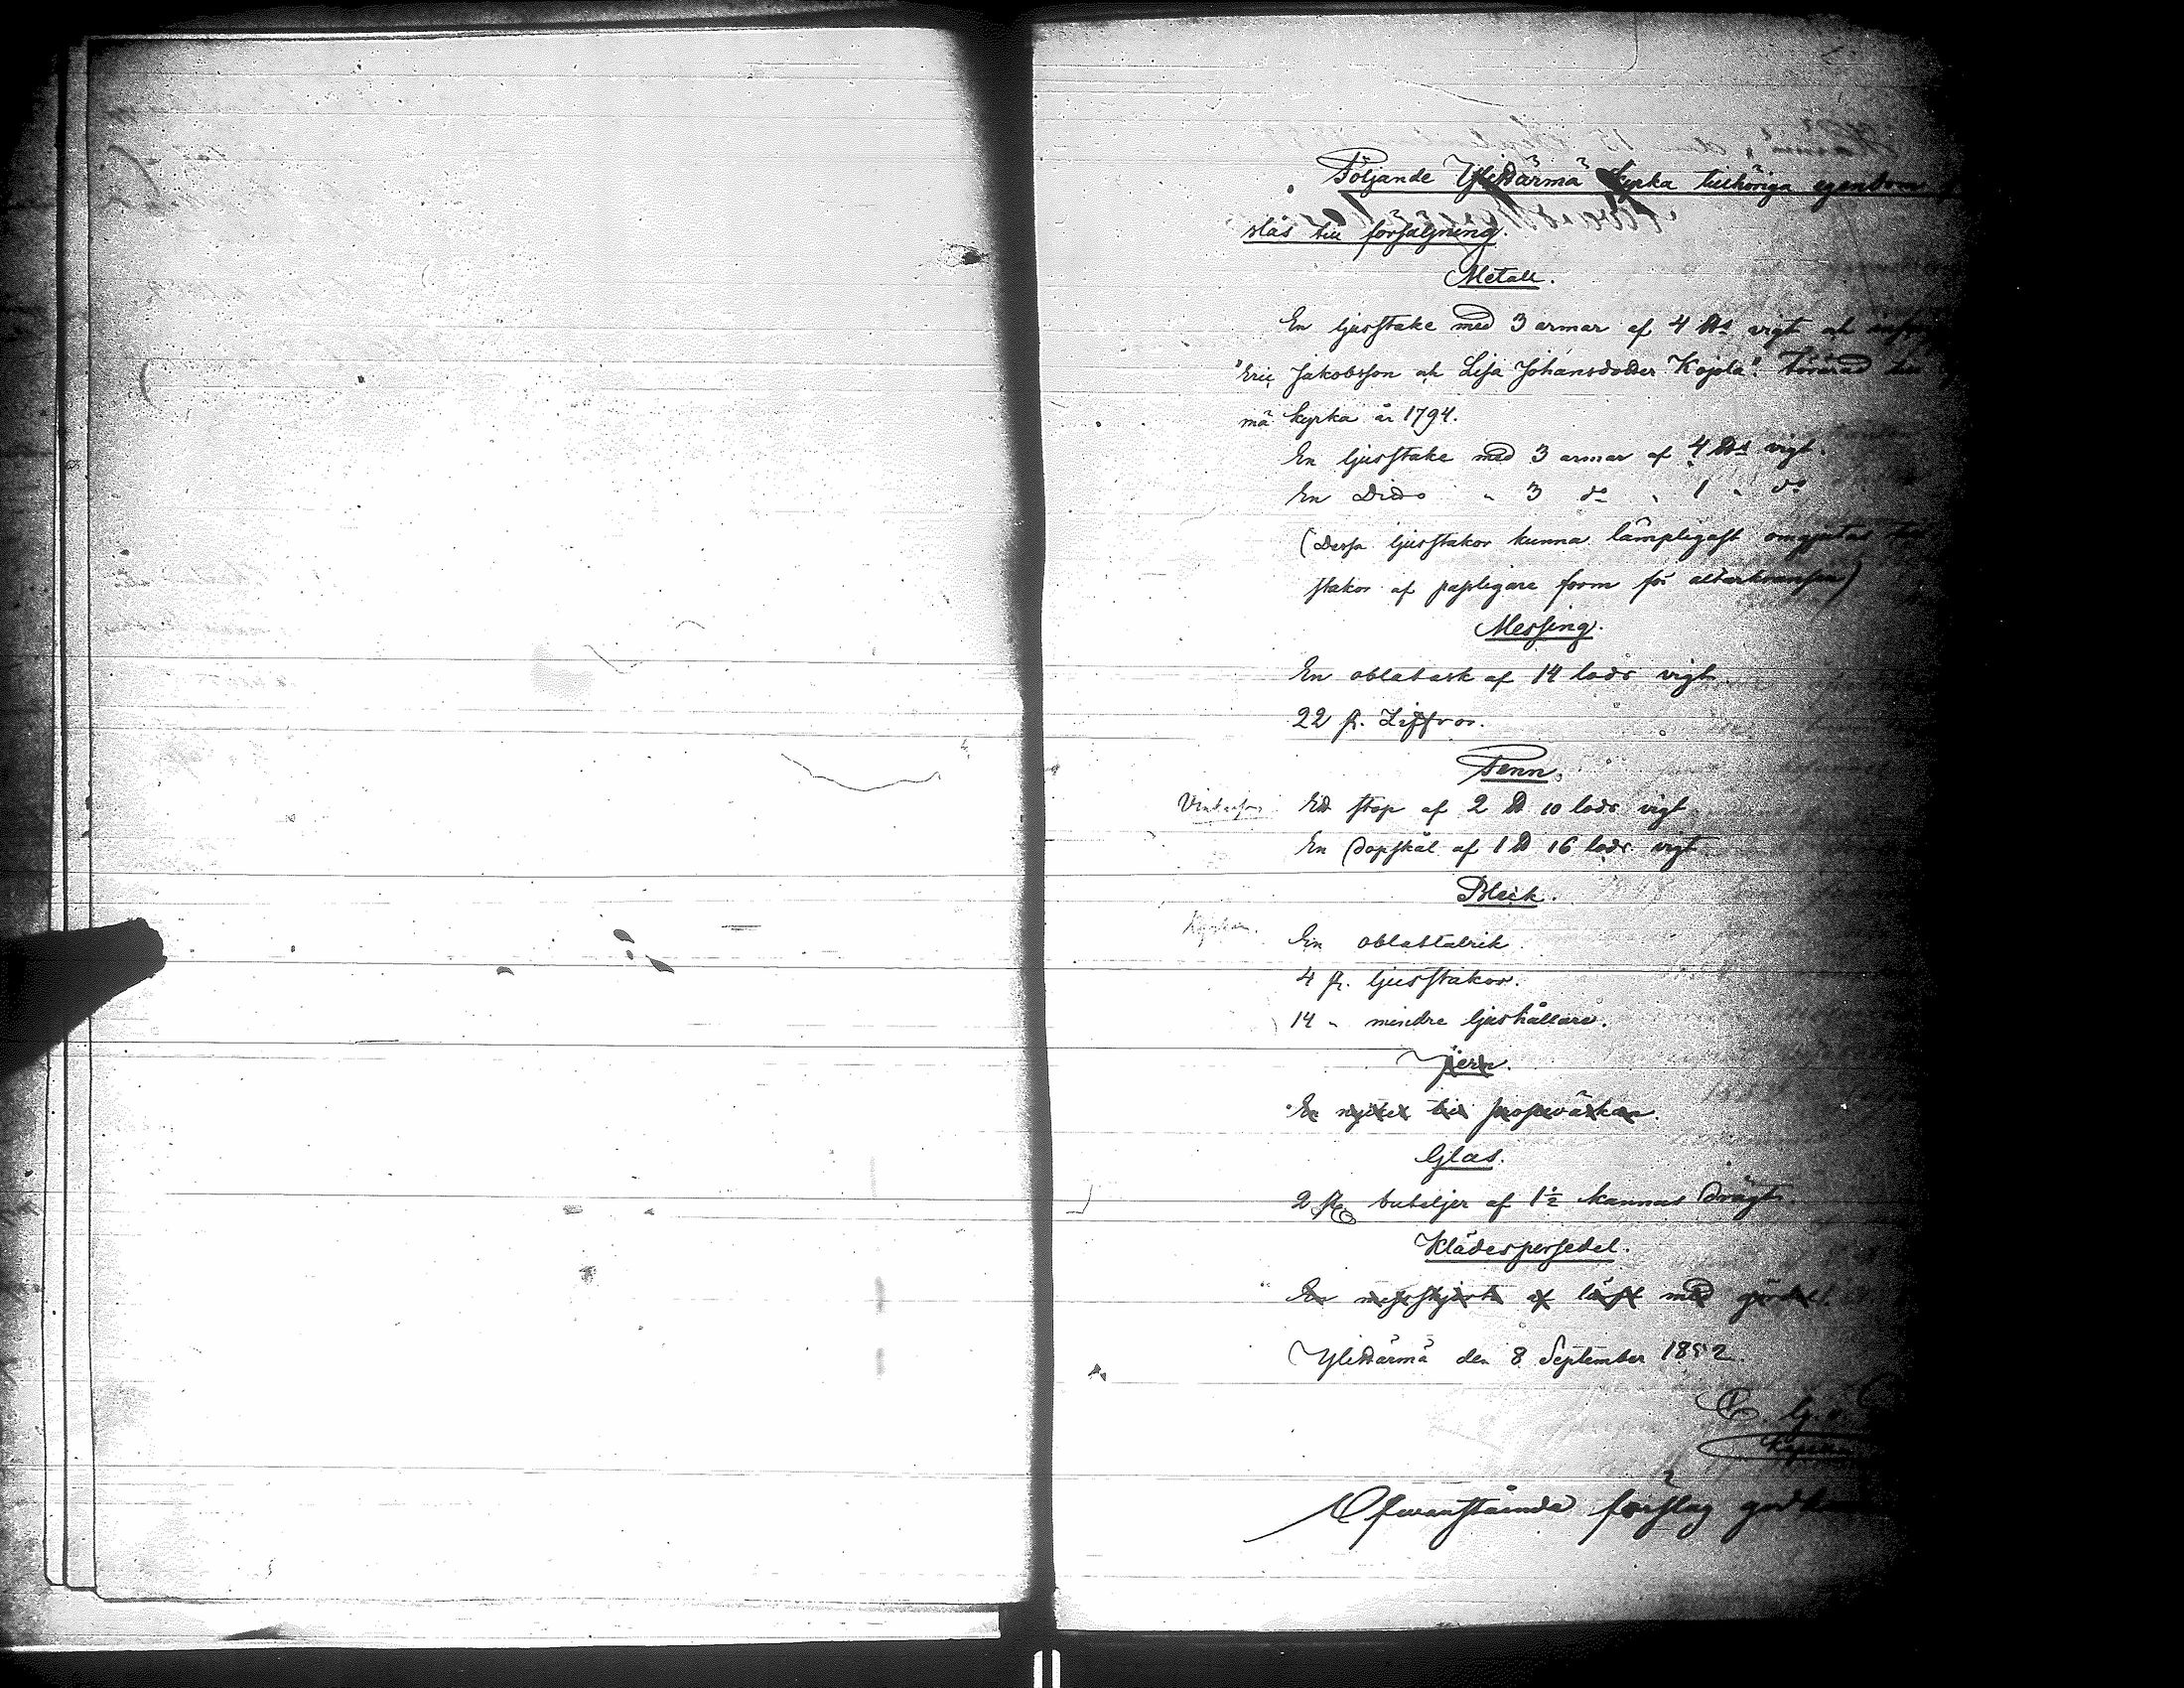 Följande Ylihärmä kyrka tillhöriga egendom
slås till försäljning.
Metall.
En ljusstake med 3 armar af 4 ℔s vigt och
"Eric Jakobsson och Lisa Johansdotter Kojola". Förärad till
mä kyrka år 1794.
En ljusstake med 3 armar af 4 ℔s vigt.
En Dito " 3 do " 1 " do
(Dessa ljusstakor kunna lämpligast omgjutas till
stakor af passligare form för altarkransen)
Messing.
En oblatask af 14 lods vigt
22 st.
Tenn.
Ett stop af 2 ℔ 10 lods vigt
En dopskål af 1 ℔ 16 lods vigt
Bleck.
En oblattalrik.
4 st. ljusstakor.
14 " mindre ljushållare.
Jern.
En nyckel till
Glas.
2 st buteljer af 1½ kannas drägt.
Klädespersedel.
En messskjorta af lärft med gördel.
Ylihärmä den 8 September 1892.
Ofvanstående förslag